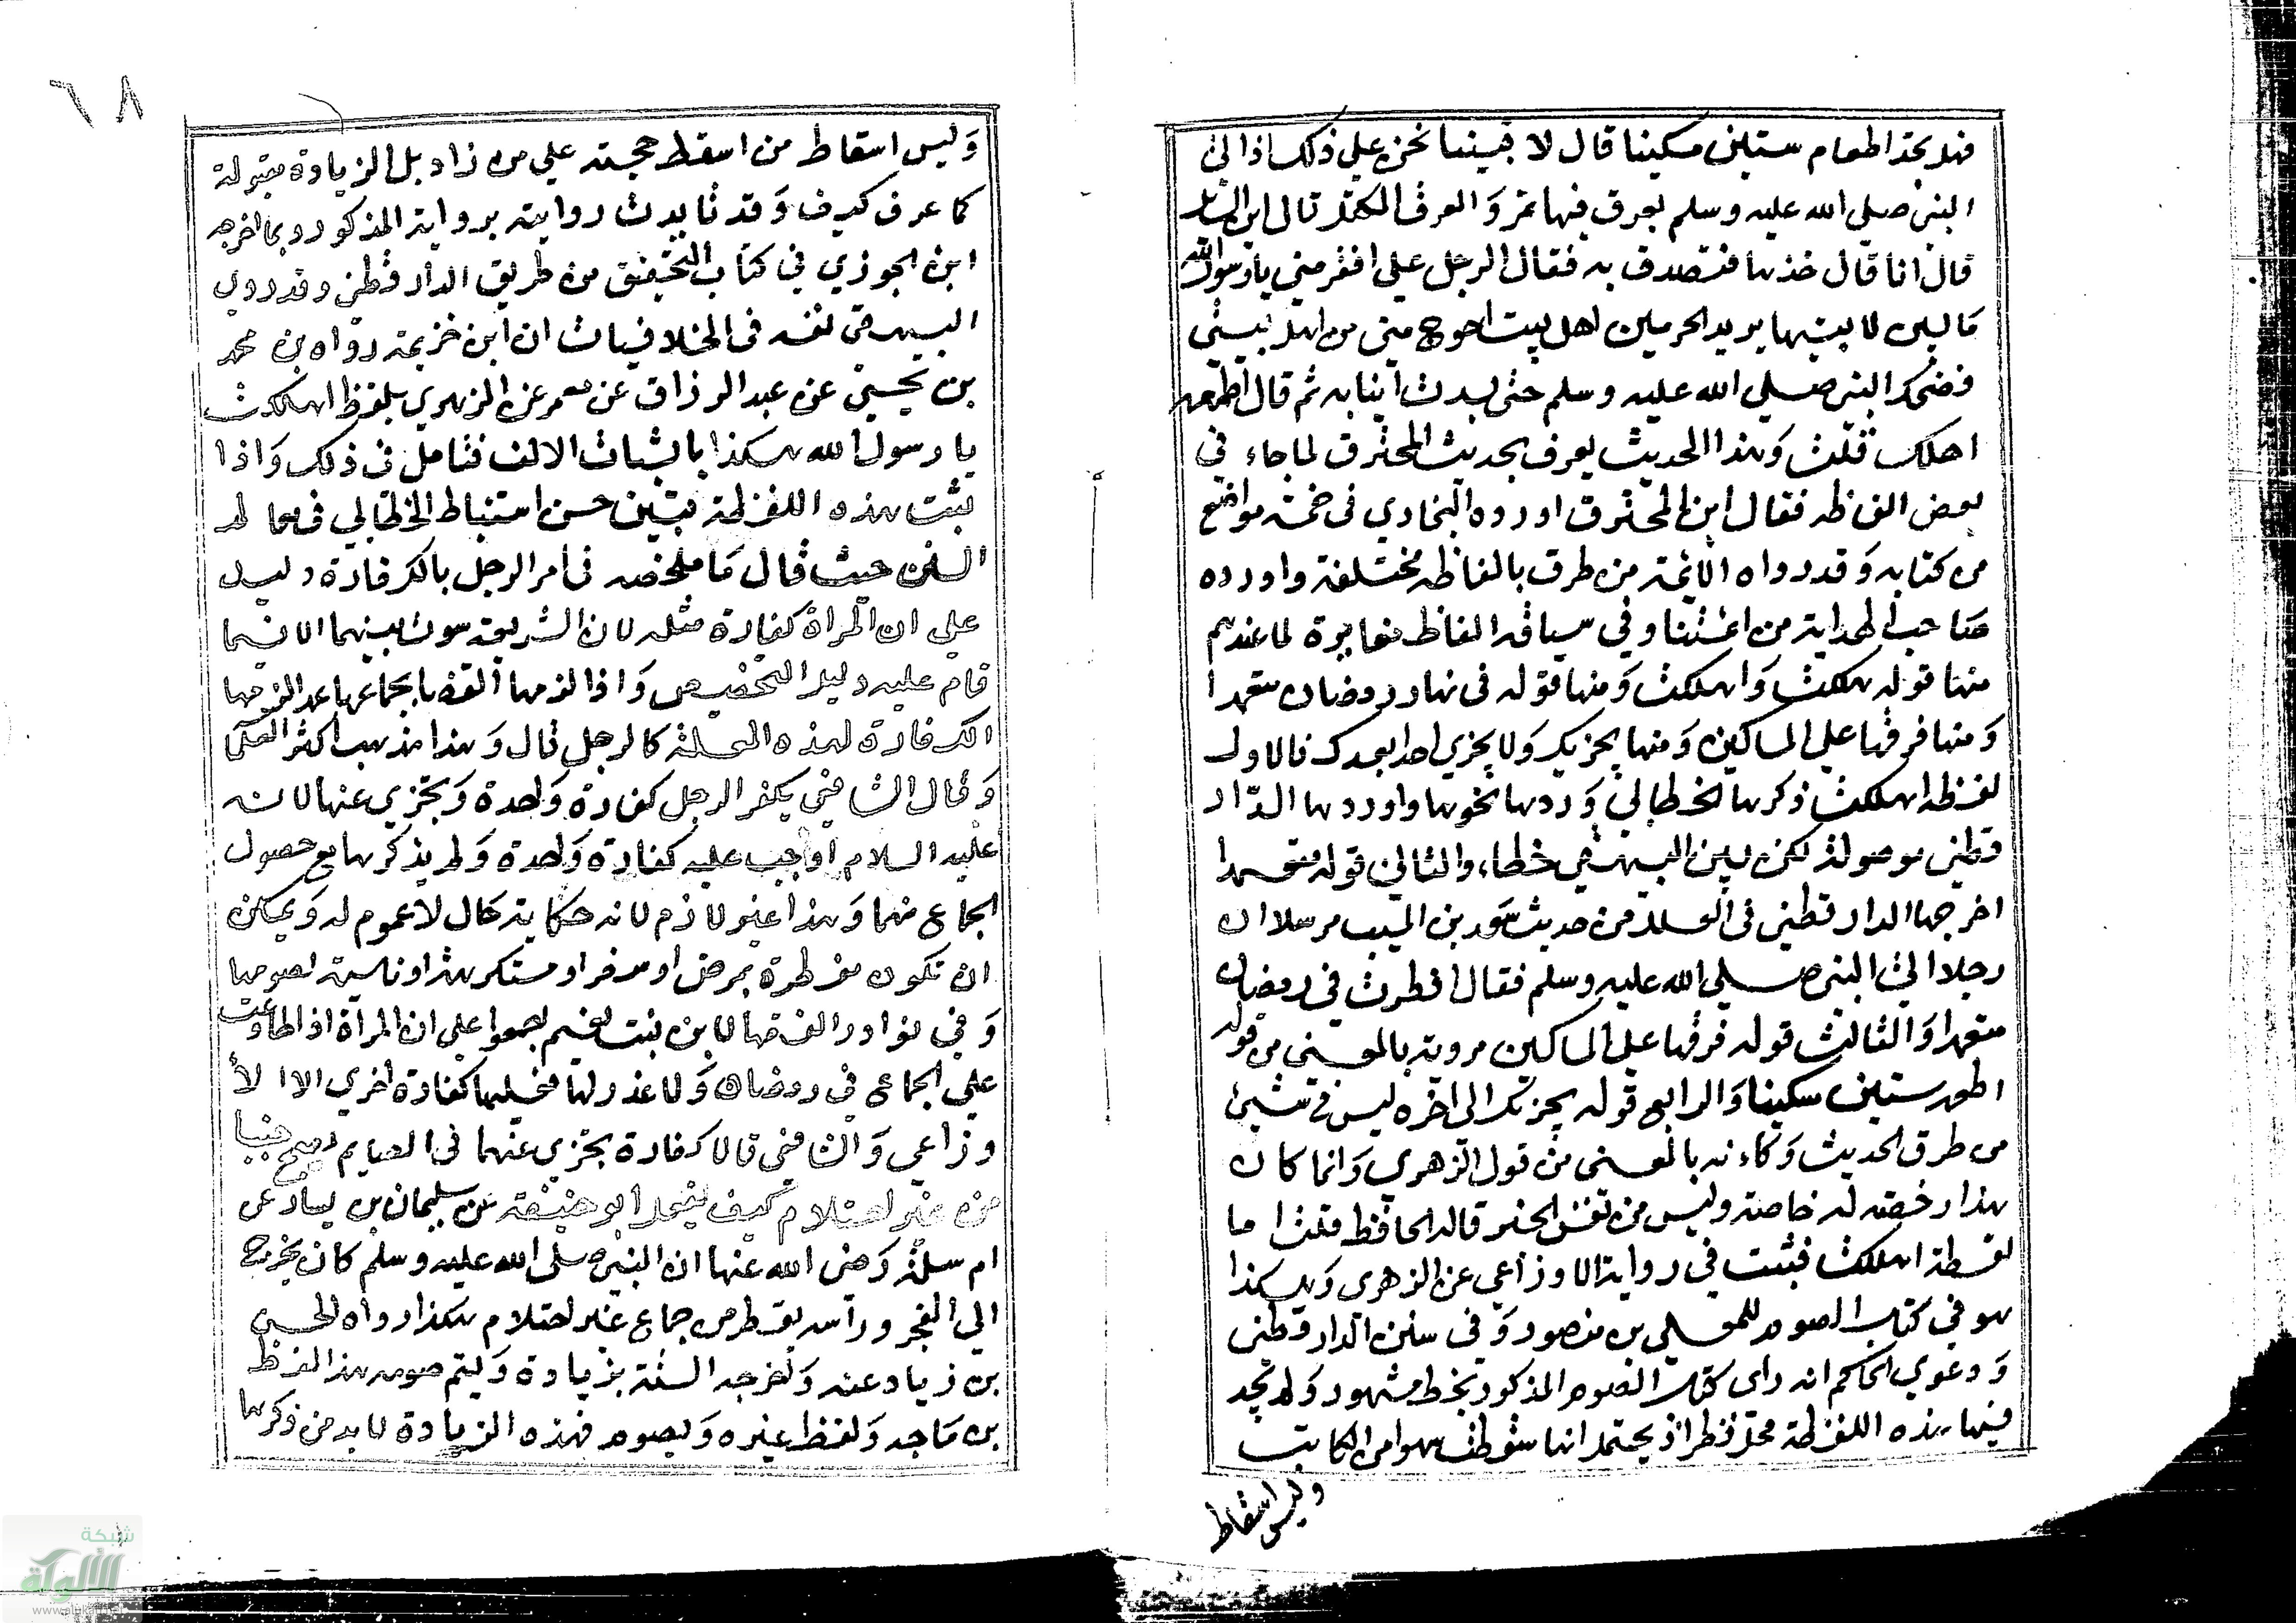 فهل تجد اطعام ستين مسكينا قال لا فبينما نحن علي ذلك اذ اتي
النبي صلي الله عليه وسلم بعرق فيها تمر وَ العرق المكتل قال اين السائل
قال انا قال خذها فتصدق به فقال الرجل علي افقر مني يا رسول الله
فما بين لابتيها يريد الحرمين اهل بيت احوج مني من اهل بيتي
فضحك النبي صلي الله عليه وسلم حتي بدت انيابه ثم قال اطعمه
اهلك قلت وَهذا الحديث يعرف بحديث المحترق لما جاء في
بعض الفاظه فقال اين المحترق اورده البخاري في خمسة مواضع
من كتابه وَ قد رواه الائمة من طرق بالفاظ مختلفة واورده
صاحب الهداية من ائمتنا وفي سياقه الفاظ مغايرة لما عندهم
منها قوله هلكت وَاهلكت وَمنها قوله في نهار رمضان متعمدا
وَمنها فرقها علي المساكين وَمنها يجزيك وَلا يجزي احدا بعدك فالاول
لفظة اهلكت ذكرها الخطابي وَردها نحوها واوردها الدار
قطني موصولة لكن بين البيهقي خطاء والثاني قوله متعمدا
اخرجها الدارقطني في العلل من حديث سعيد بن المسيب مرسلا ان
رجلا اتي النبي صلي الله عليه وسلم فقال افطرت في رمضان
متعمدا وَالثالث قوله فرقها علي المساكين مروية بالمعني من قوله
اطعم ستين مسكينا وَالرابع قوله يجزيك الي اخره ليس في شيئ
من طرق الحديث وَكاءنه بالمعني من قول الزهري وَانما كان
هذا رخصة له خاصة وليس من نفس الخبر قاله الحافظ قلت اما
لفظة اهلكت فثبتت في رواية الاوزاعي عن الزهري وَهكذا
هو في كتاب الصوم للمعلي بن منصور وَفي سنن الدارقطني
وَ دعوي الحاكم انه راي كتاب الصوم المذكور بخط مشهور وَلم يجد
فيها هذه اللفظة محل نظر اذ يحتمل انها سقطت سهوا من الكاتب
وليس اسقاط
٦٨
وَليس اسقاط من اسقط حجته علي من زاد بل الزيادة مقبولة
كما عرف كيف وَقد تايدت روايته برواية المذكور وبما اخرجه
ابن الجوزي في كتاب التحقيق من طريق الدارقطني وقد روي
البيهقي نفسه في الخلافيات ان ابن خزيمة رواه بن محمد
بن يحيي عن عبد الرزاق عن معمر عن الزهري بلفظ اهلكت
يا رسول الله هكذا باثبات الالف فتامل في ذلك وَاذا
ثبتت هذه اللفظة تبين حسن استنباط الخطابي في معالم
السنن حيث قال مَا ملخصه في امر الرجل بالكفارة دليل
علي ان المراة كفارة مثله لان الشريعة سوت بينهما الا فيما
قام عليه دليل التخصيص وَاذا لزمها القضا بجماعها عمدا لزمها
الكفارة لهذه العلة كالرجل قال وَهذا مذهب اكثر العلما
وَقال الشافعي يكفر الرجل كفارة وَاحدة وَتجزي عنها لانه
عليه السلام اوجب عليه كفارة وَاحدة وَلم يذكرها مع حصول
الجماع منهما وَهذا غير لازم لانه حكاية حَال لا عموم له وَيمكن
ان تكون مفطرة بمرض او سفر او مستكرهة او ناسية لصومها
وَفي نوادر الفقها لابن بنت نعيم اجمعوا علي ان المراة اذا طاوعت
علي الجماع في رمضان وَلا عذر لها فعليها كفارة اخري الا الا
وزاعي وَالشافعي قالا كفارة تجزي عنهما في الصيام من اصبح جنبا
من غير احتلام كيف يفعل ابو حنيفة عن سليمان بن يسار عن
ام سلمة رَضي الله عنها ان النبي صلي الله عليه وسلم كان يخرج
الي الفجر ورأسه يقطر من جماع غير احتلام هكذا رواه الحسن
بن زياد عنه وَاخرجه الستة بزيادة وَليتم صومه هذا لفظ
بن مَاجه وَلفظ غيره وَيصوم فهذه الزيادة لا بد من ذكرها
شبكة
الألوكة
www.alukah.net